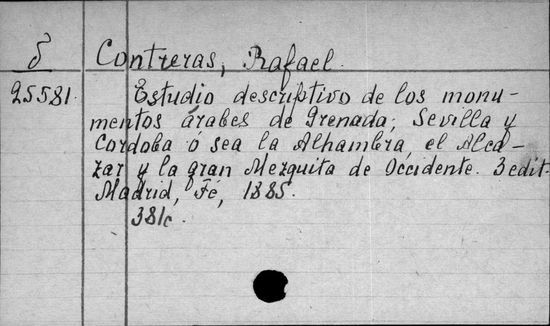 δ Contreras, Rafael.
25581. Estudio descriptivo de los monu-
mentos árabes de Grenada, Sevilla y
Cordoba ó sea la Alhambra, el Alca-
zar y la gran Mezquita de Occidente. 3 edit.
Madrid, Fé, 1885.
381c.